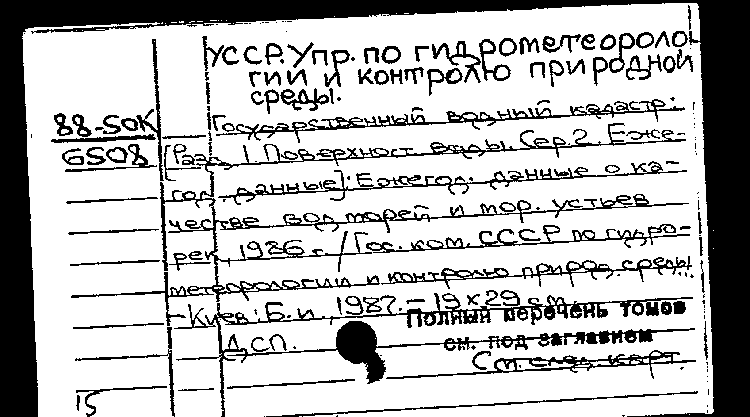 УССР. Упр. по гидрометеороло-
гии и контролю природной
среды.
88-50К
6508
Государственный водный кадастр:
[Разд. 1. Поверхност. воды. Сер. 2. Еже-
год. данные]: Ежегод. данные о ка-
честве вод морей и мор. устьев
рек, 1986 г. / Гос. ком. СССР по гидро-
метеорологии и контролю природ. среды.
– Киев: Б. и., 1987. – 19 х 29 см.
Полный перечень томов
ДСП.
см. под заглавием
См. след. карт.
15